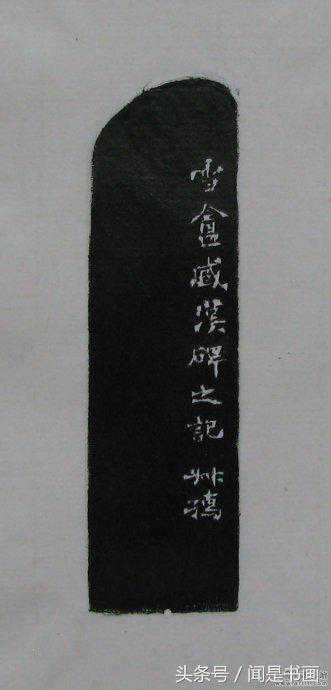 雪盦臧漢碑之記
头条号 / 闻是书画